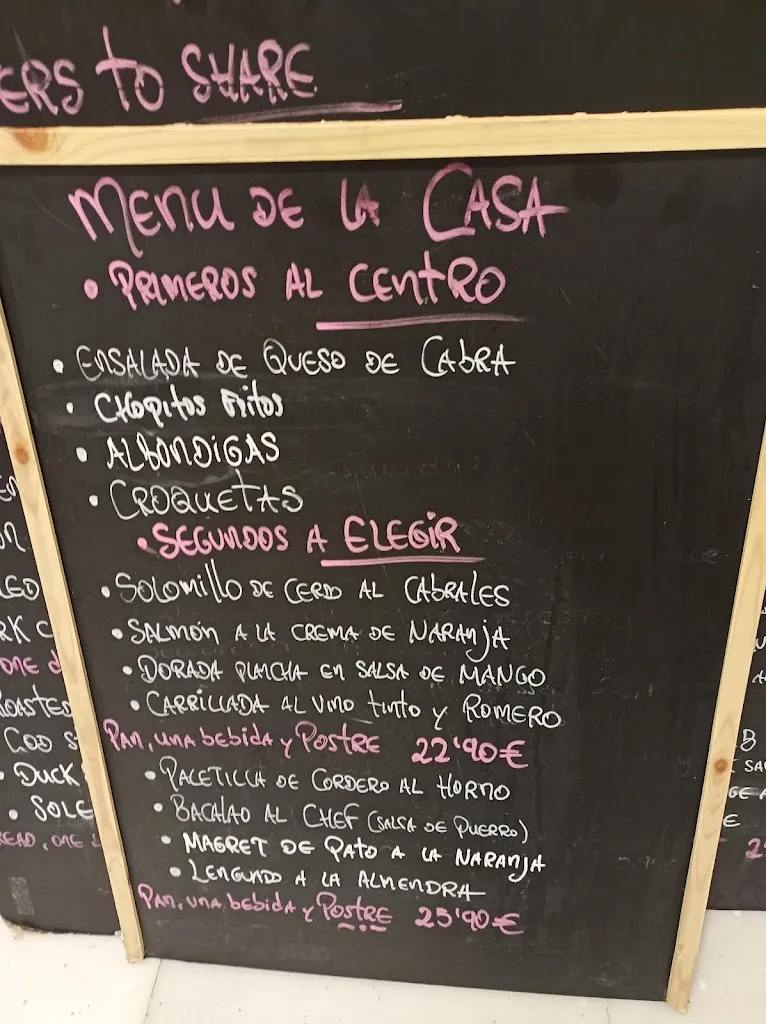 ERS TO SHARE
MENU DE LA CASA
• PRIMEROS AL CENTRO
• ENSALADA DE QUESO DE CABRA
• CHOPITOS FRITOS
• ALBONDIGAS
• CROQUETAS
• SEGUNDOS A ELEGIR
• SOLOMILLO DE CERDO AL CABRALES
• SALMÓN A LA CREMA DE NARANJA
• DORADA PLANCHA EN SALSA DE MANGO
• CARRILLADA AL VINO TINTO Y ROMERO
PAN, UNA BEBIDA Y POSTRE 22'90€
• PALETILLA DE CORDERO AL HORNO
• BACALAO AL CHEF (SALSA DE PUERRO)
• MAGRET DE PATO A LA NARANJA
• LENGUADO A LA ALMENDRA
PAN, UNA BEBIDA Y POSTRE 25'90€
LED
RK C
ONE
ROASTED
COD S
• DUCK
• SOLE
READ, ONE